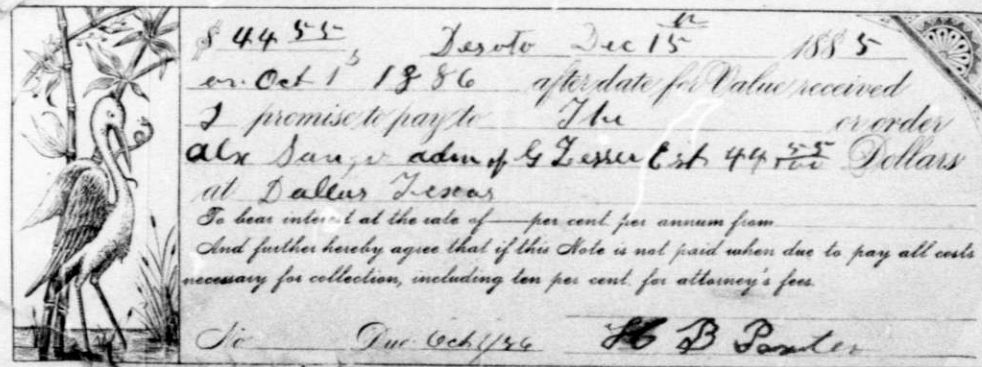 $ 44 55 Desoto Dec 15th 1885
on Oct 1st 1886 after date for Value received
I promise to pay to The or order
Alx Sanger adm of G Lesser Est 44 55/100 Dollars
at Dallas Texas
To bear interest at the rate of — per cent. per annum from
And further hereby agree that if this Note is not paid when due to pay all costs
necessary for collection, including ten per cent. for attorney's fees.
No Due Oct 1/86 B